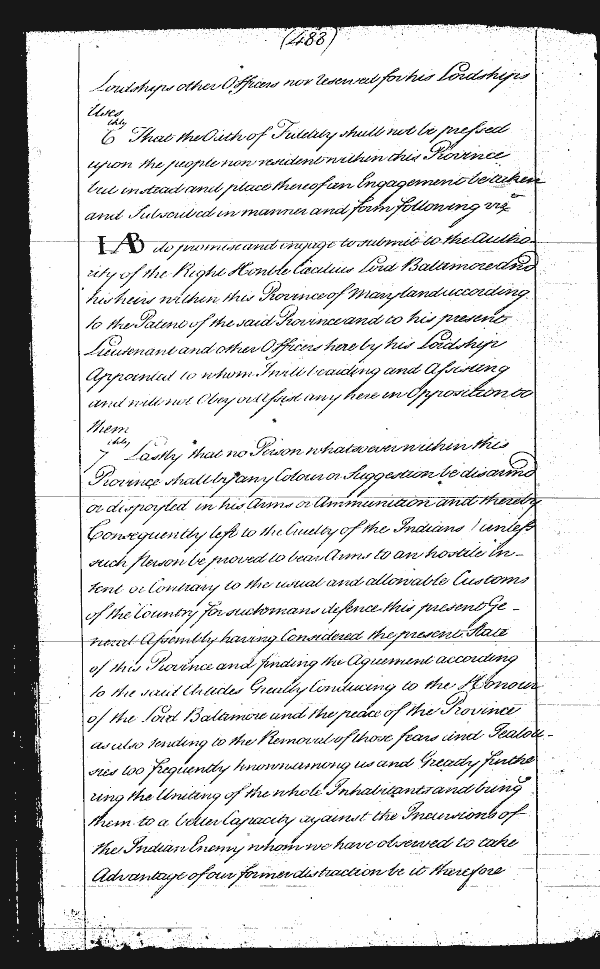 (488)
Lordships other Officers nor reserved for his Lordships
Uses
6thly That the Oath of Fidelity shall not be pressed
upon the people now resident within this Province
but instead and place thereof an Engagement be taken
and Subscribed in manner and form following vizt
I AB do promise and engage to submit to the Autho-
rity of the Right Honble Cecilius Lord Baltamore and
his heirs within this Province of Maryland according
to the Patent of the said Province and to his present
Lieutenant and other Officers here by his Lordship
Appointed to whom I will be aiding and Assisting
and will not Obey or Assist any here in Opposition to
them
7thly Lastly that no Person whatsoever within this
Province shall by any Colour or Suggestion be disarmd
or dispoyled in his Arms or Ammunition and thereby
Consequently left to the Cruelty of the Indians (unless
such Person be proved to bear Arms to an hostile in-
tent or Contrary to the usual and allowable Customs
of the Country for such mans defence this present Ge-
neral Assembly having Considered the present State
of this Province and finding the Agreement according
to the said Articles Greatly Conducing to the Honour
of the Lord Baltamore and the peace of the Province
as also tending to the Removal of those fears and Jealou-
sies too frequently known among us and Greatly furthe
ring the Uniting of the whole Inhabitants and bring
them to a better Capacity against the Incursions of
the Indian Enemy whom we have observed to take
Advantage of our former distraction be it therefore